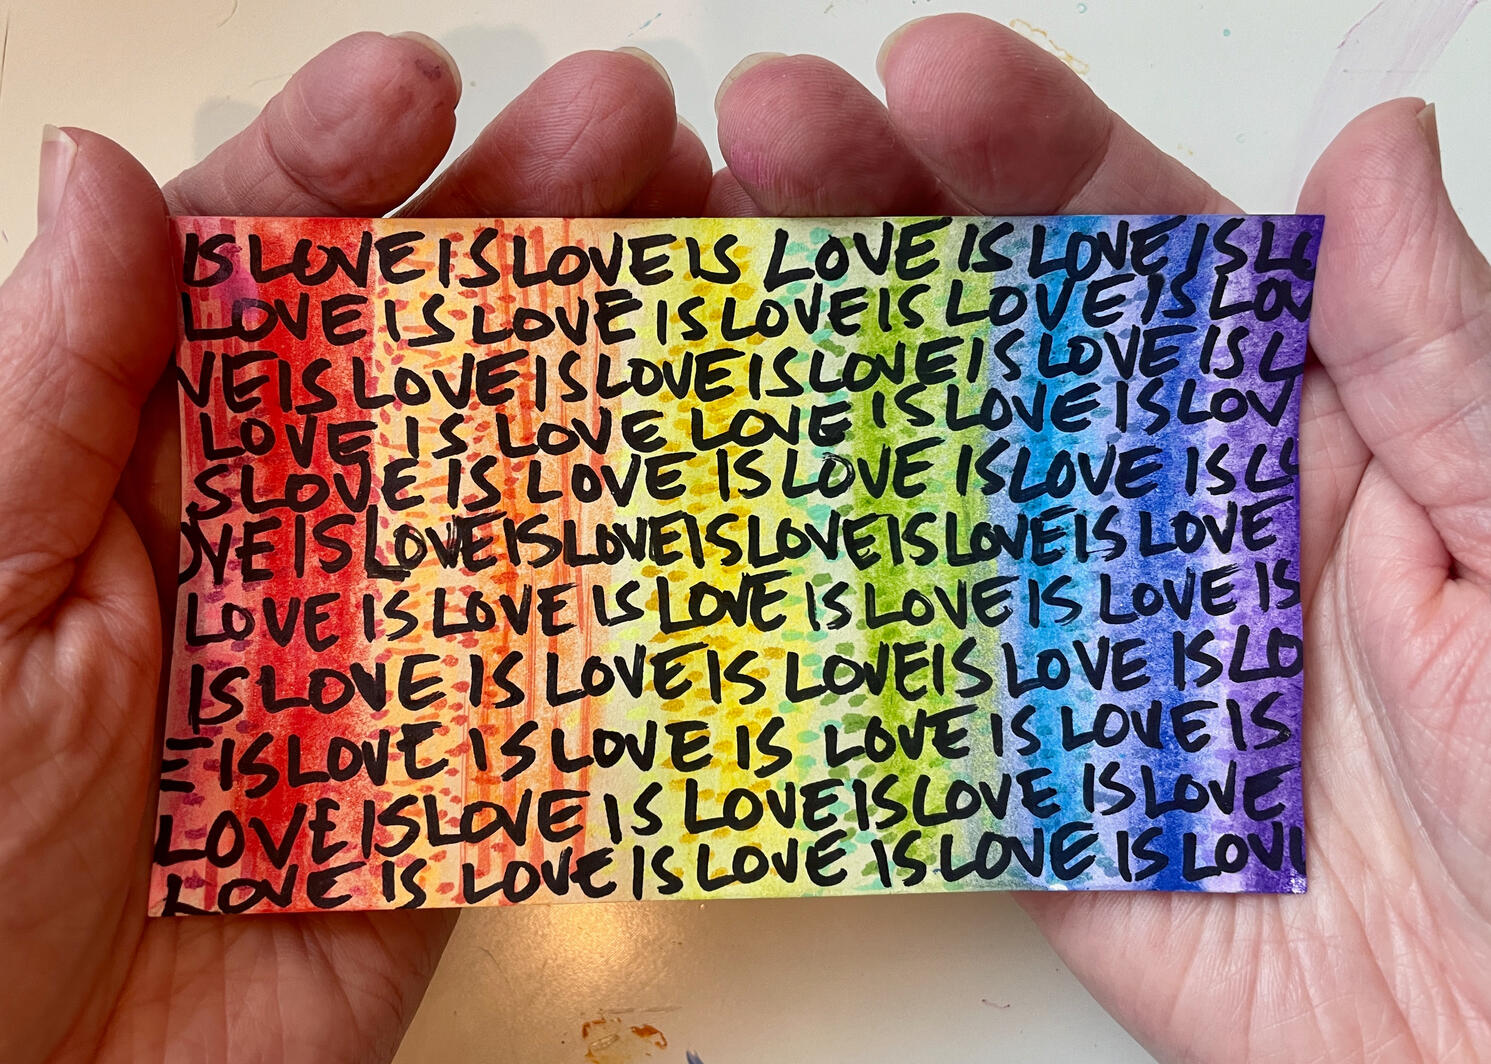 IS LOVE IS LOVE IS LOVE IS LOVE IS LO
LOVE IS LOVE IS LOVE IS LOVE IS LOV
VE IS LOVE IS LOVE IS LOVE IS LOVE IS L
LOVE IS LOVE LOVE IS LOVE IS LOV
S LOVE IS LOVE IS LOVE IS LOVE IS LO
OVE IS LOVE IS LOVE IS LOVE IS LOVE IS LOVE
LOVE IS LOVE IS LOVE IS LOVE IS LOVE IS
IS LOVE IS LOVE IS LOVE IS LOVE IS LO
E IS LOVE IS LOVE IS LOVE IS LOVE IS
LOVE IS LOVE IS LOVE IS LOVE IS LOVE
LOVE IS LOVE IS LOVE IS LOVE IS LOVE